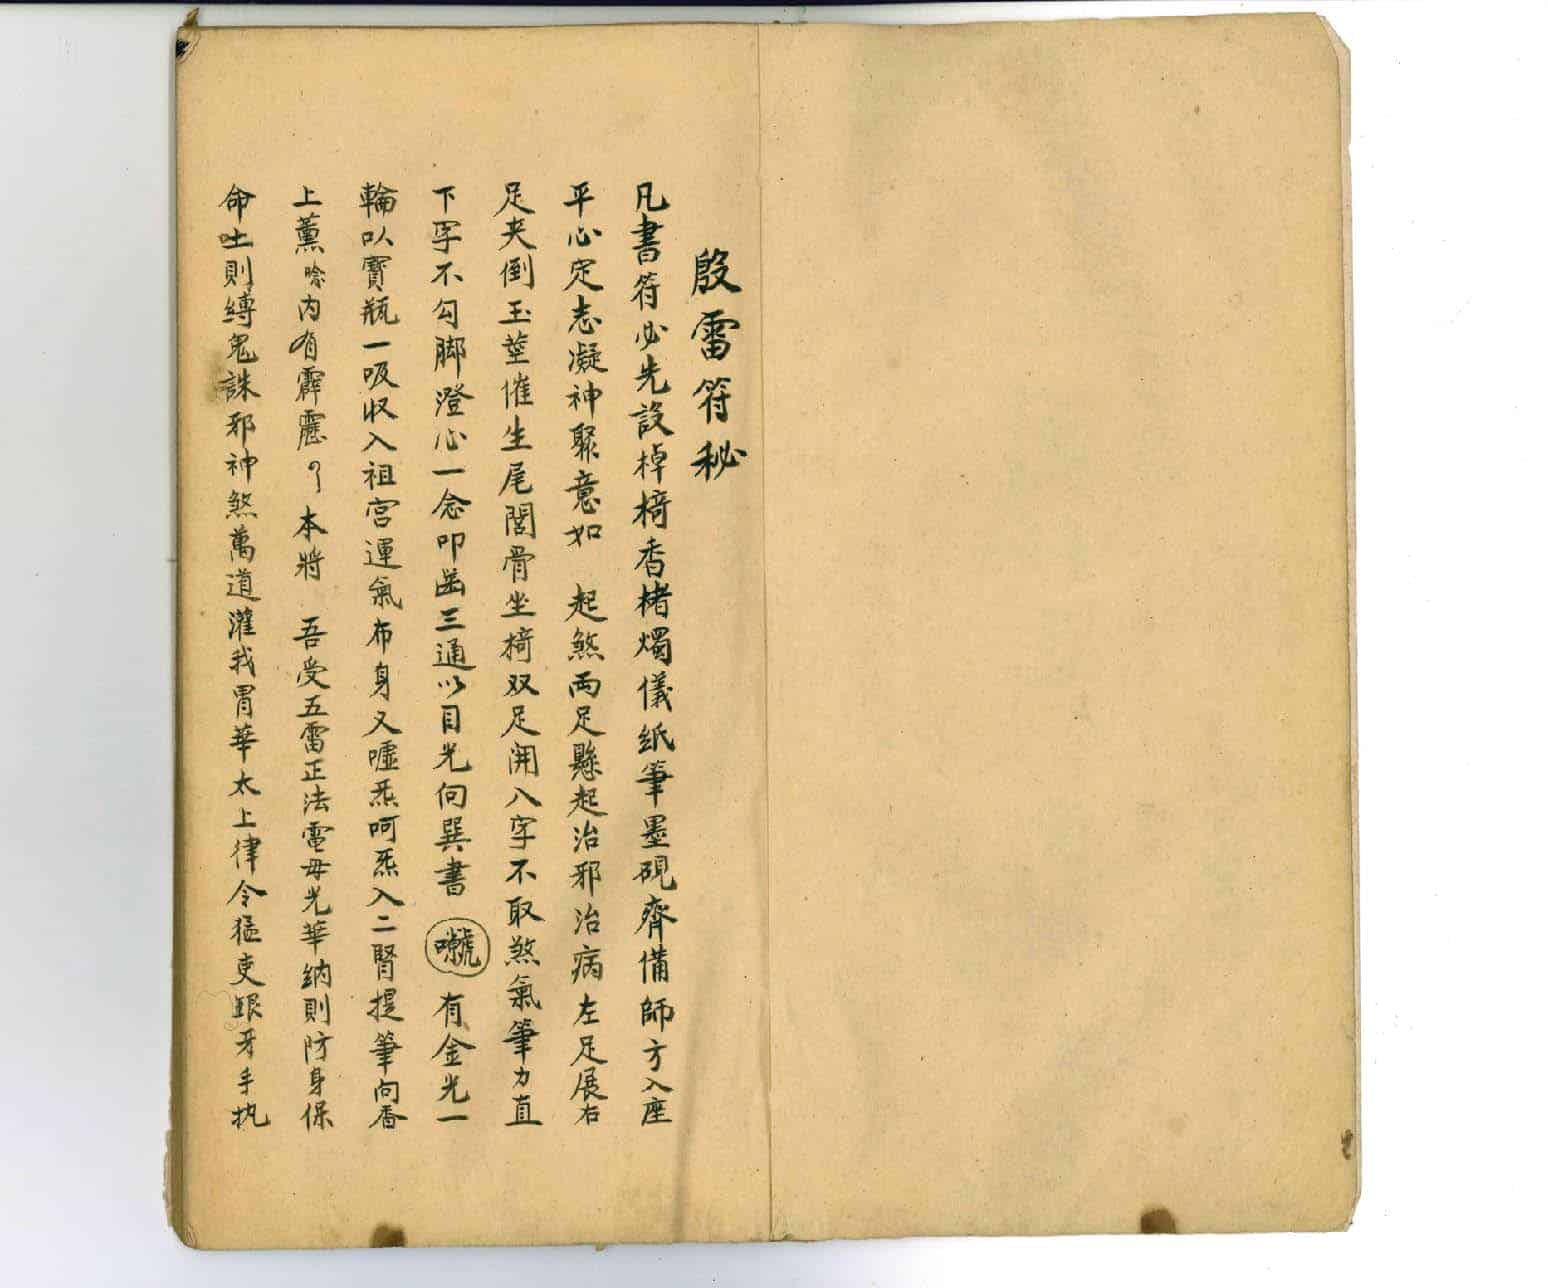 殷雷符秘
凡書符必先設棹椅香楮燭儀紙筆墨硯齊備師方入座
平心定志凝神聚意如 起煞両足懸起治邪治病左足展右
足夾倒玉莖催生尾閭骨坐椅双足開八字不取煞氣筆力直
下字不勾脚澄心一念叩齒三通以目光向巽書 有金光一
輪以寶瓶一吸収入祖宮運氣布身又噓炁呵炁入二腎提筆向香
上薰 内有霹靂 本將 吾受五雷正法電母光華納則防身保
命吐則縛鬼誅邪神煞萬道灌我胃華太上律令猛吏銀牙手执